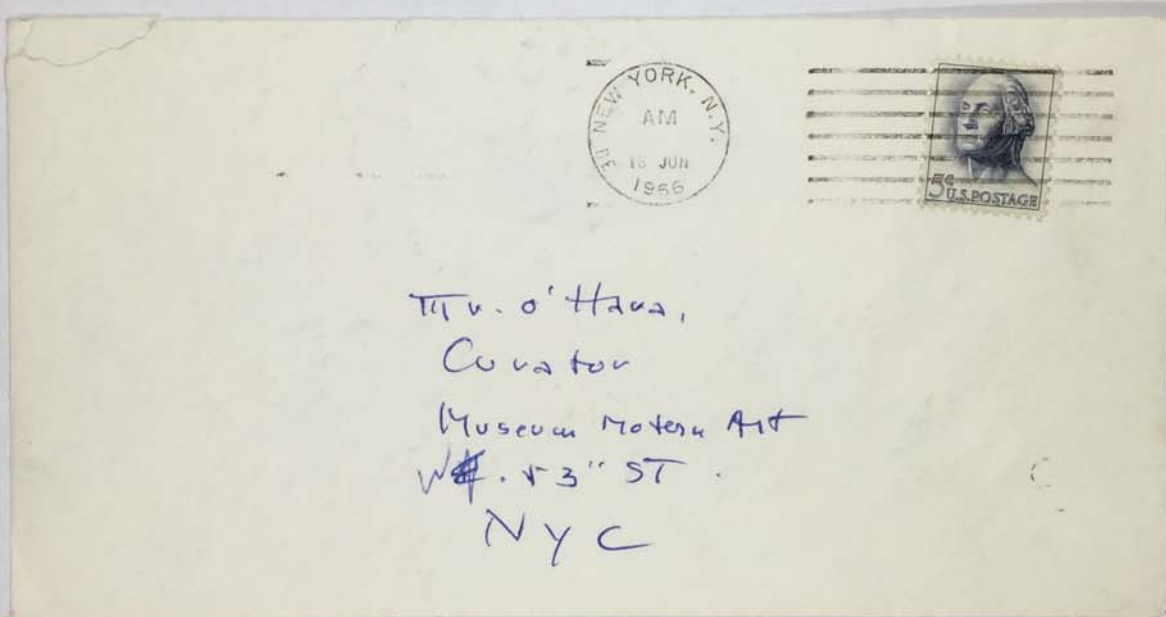 NEW YORK, N.Y.
AM
18 JUN
1966
5¢
U.S.POSTAGE
Mr. O'Hara,
Curator
Museum Modern Art
W. 53" ST.
NYC